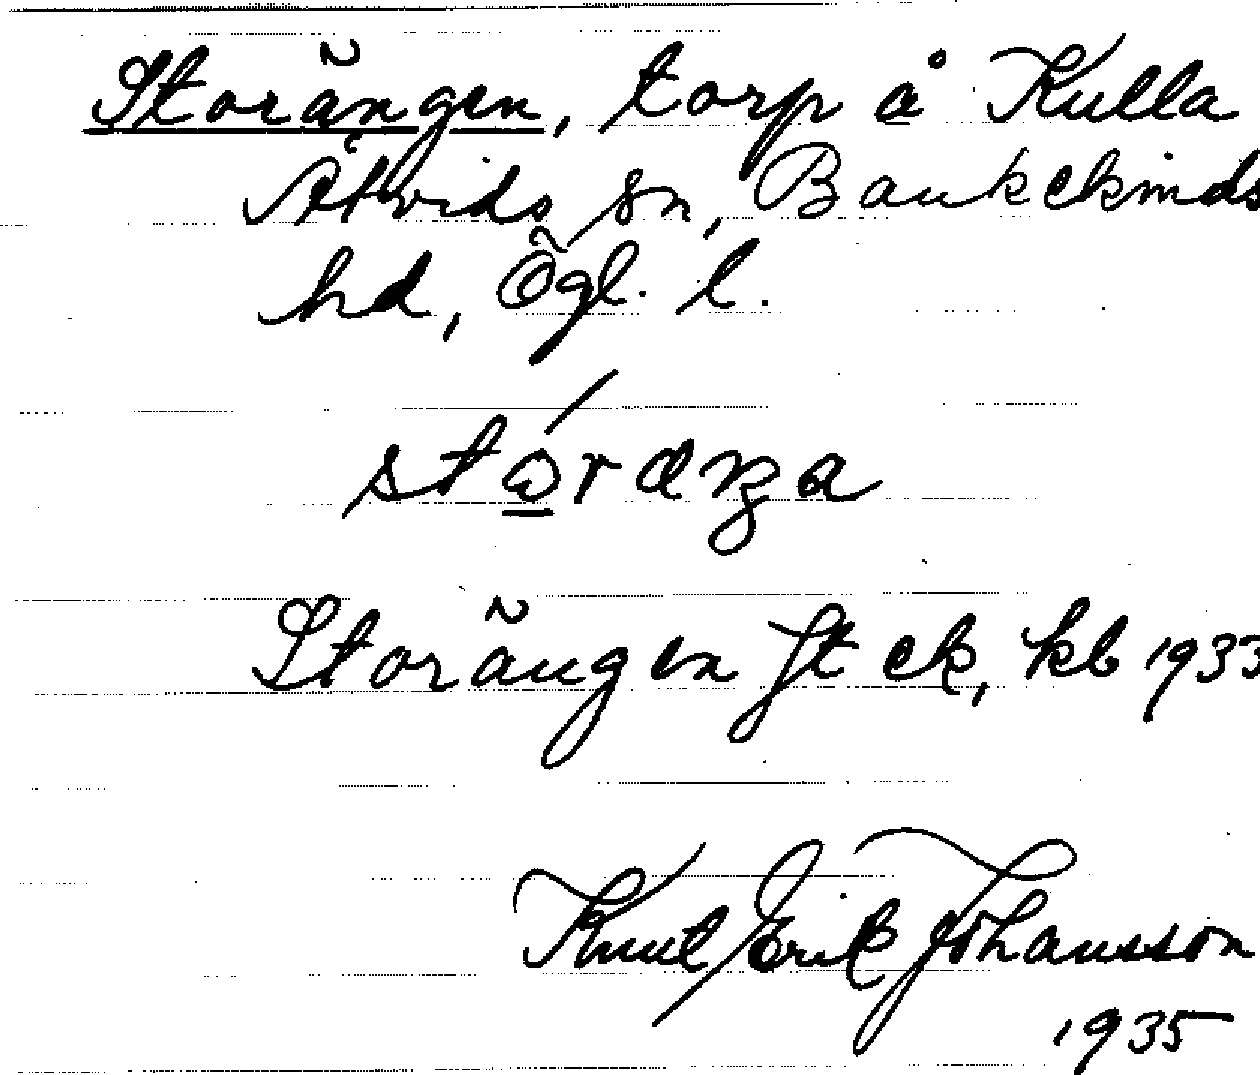 Storängen, torp å Kulla
Åtvids sn, Bankekinds
hd, Ögl. l.
Storängen ft ek, kb 1933
Knut Erik Johansson
1935